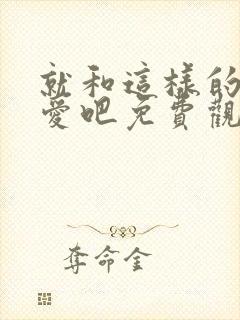 就和這樣的
愛吧免費觀
奪命金